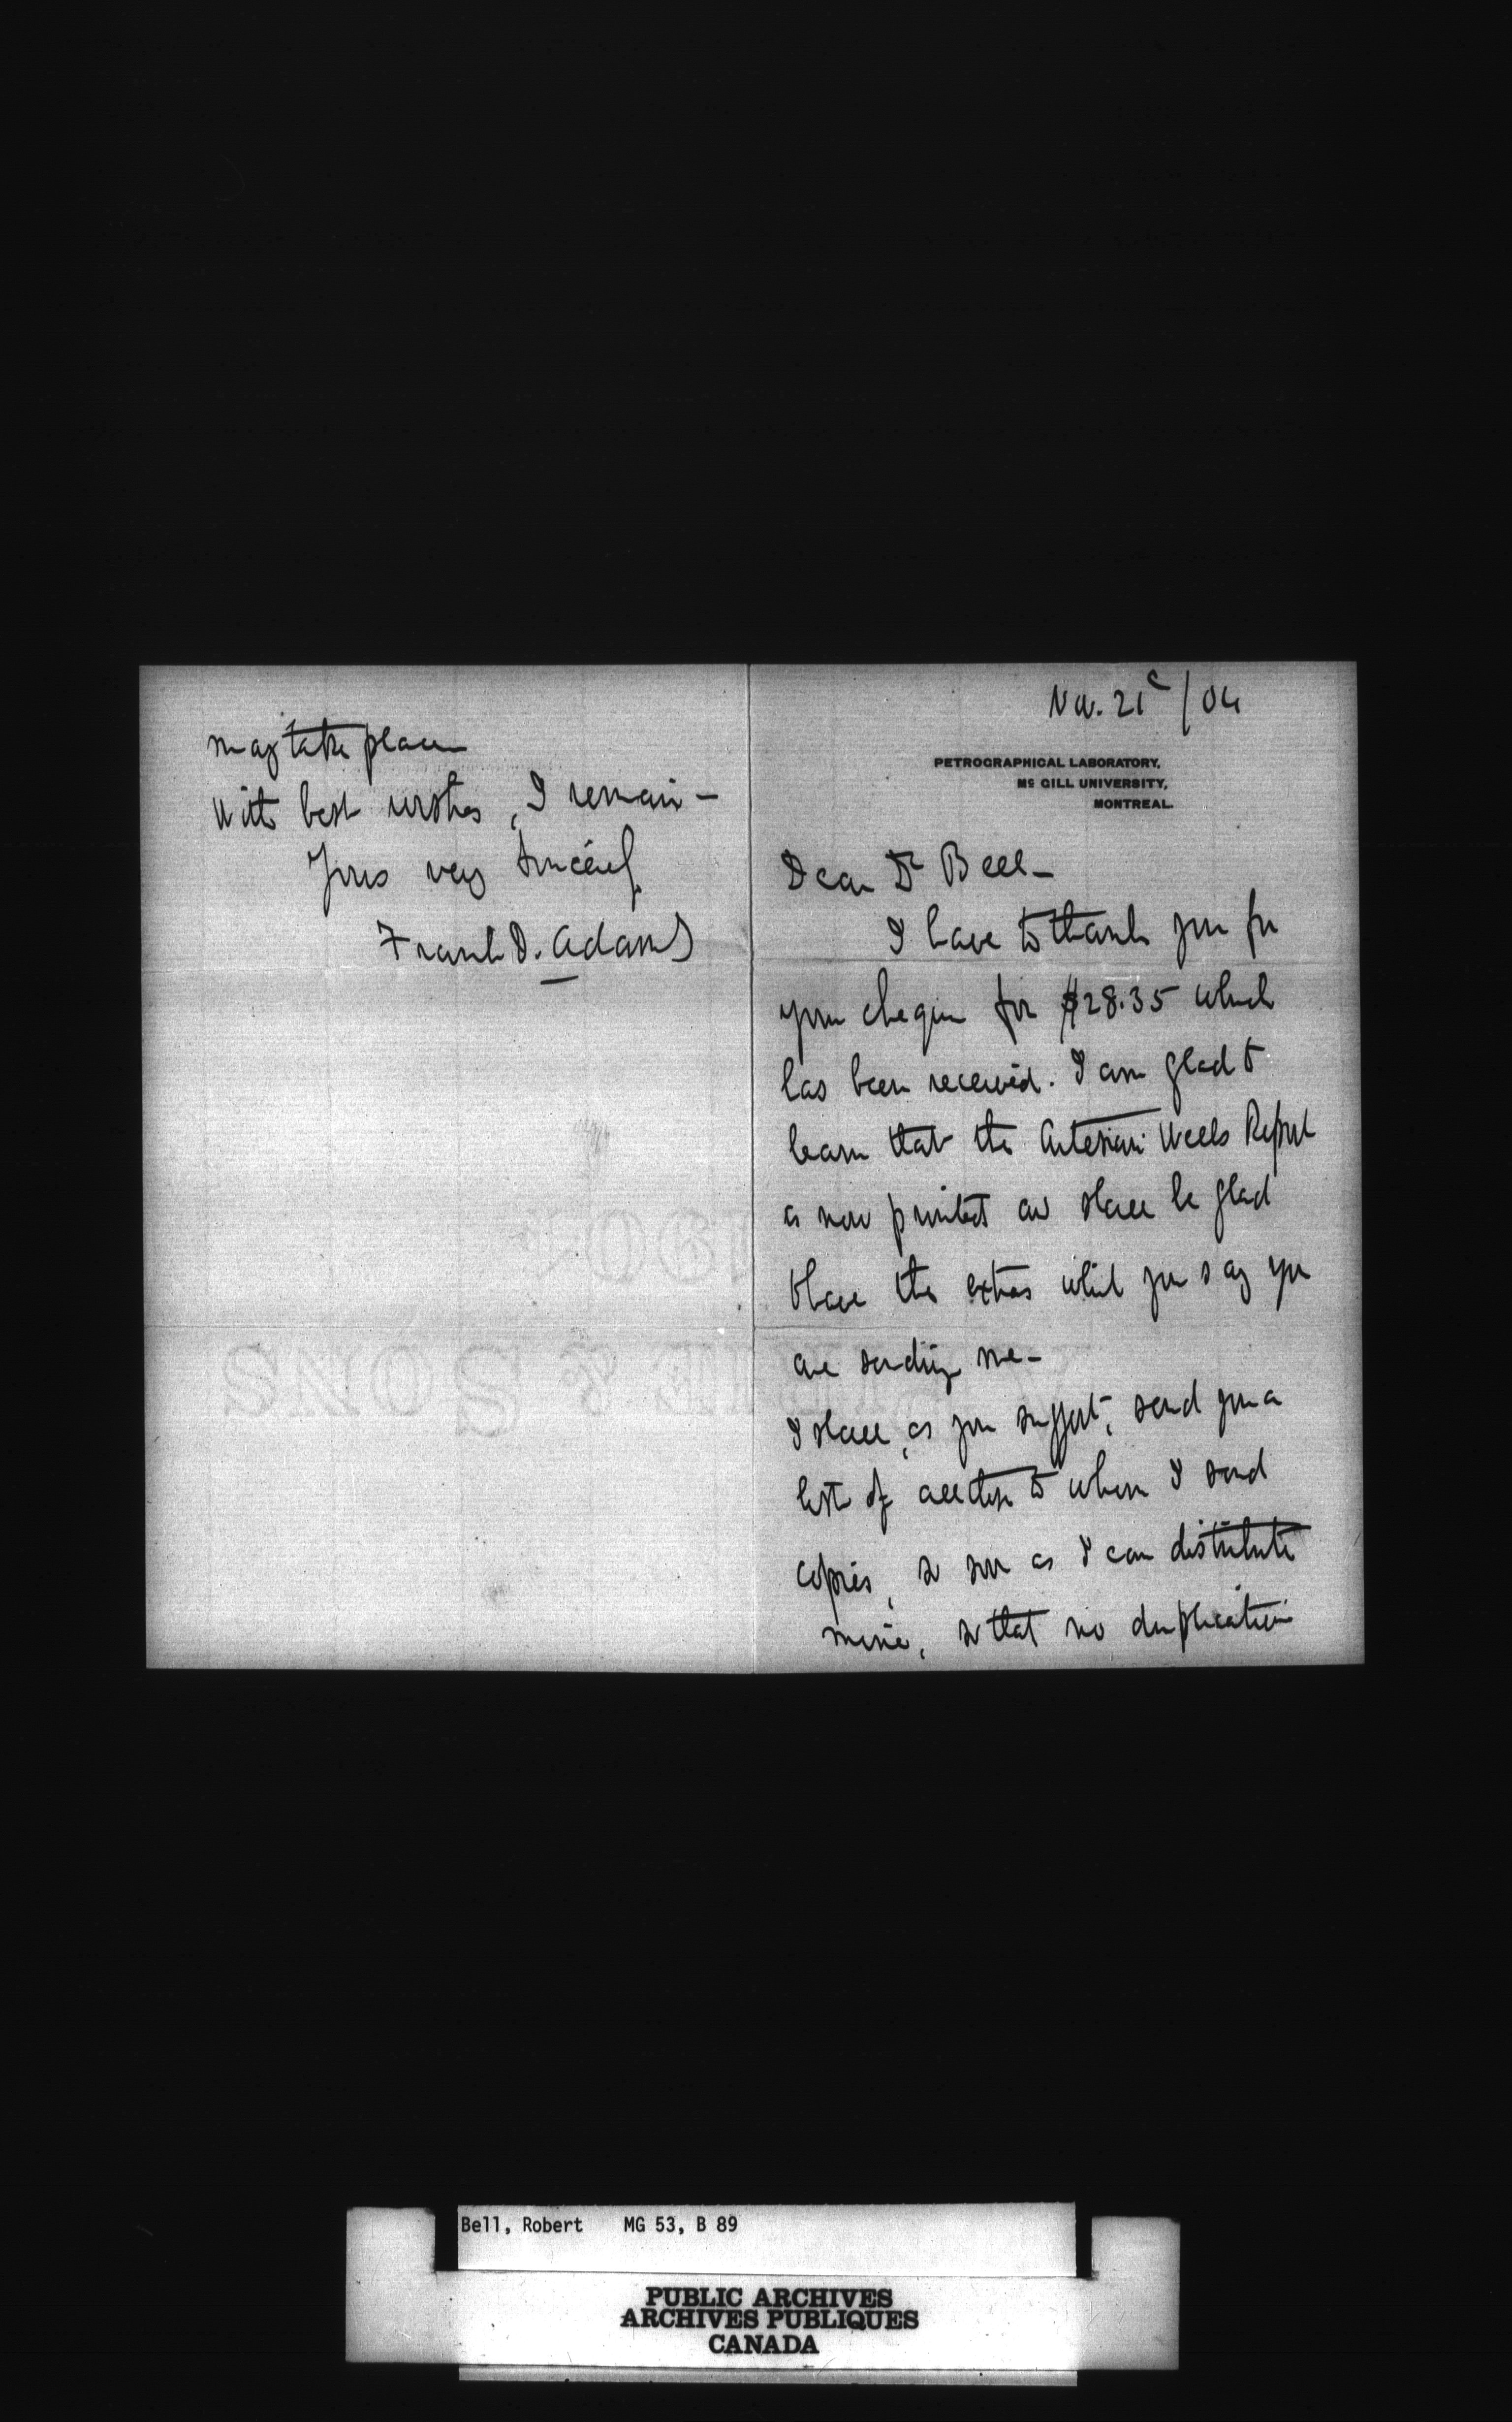 Nov. 21st/04
PETROGRAPHICAL LABORATORY,
Mc GILL UNIVERSITY,
MONTREAL.
Dear Dr Bell—
I have to thank you for
your cheque for $28.35 which
has been received. I am glad to
learn that the Artesian Wells Report
is now printed and shall be glad
to have the extras which you say you
are sending me—
I shall, as you suggest, send you a
list of all those to whom I send
copies, so soon as I can distribute
mine, so that no duplication
may take place
With best wishes, I remain—
Yours very sincerely,
Frank D. Adams
1904
& SONS
Bell, Robert MG 53, B 89
PUBLIC ARCHIVES
ARCHIVES PUBLIQUES
CANADA